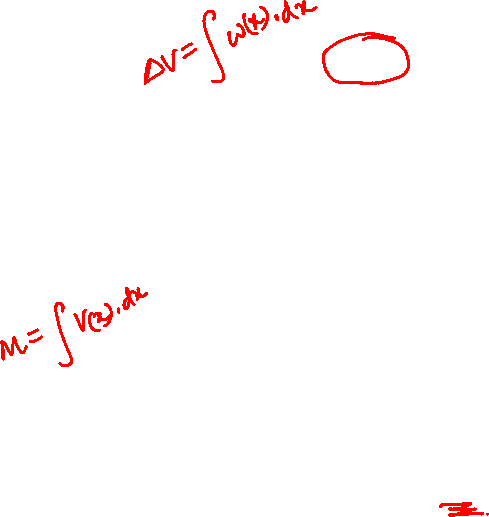 ΔV = ∫ w(x).dx
M = ∫ V(x).dx